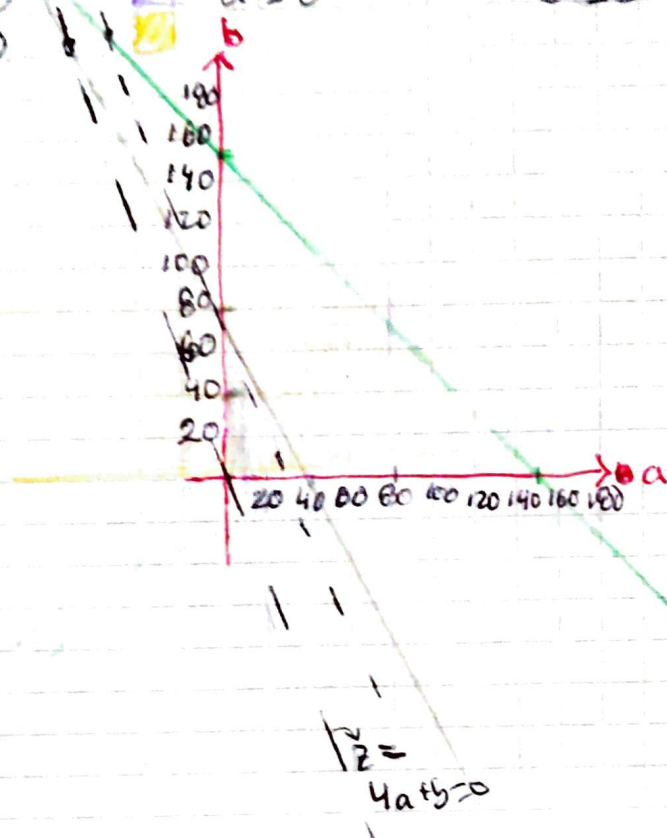 b
180
160
140
120
100
80
60
40
20
20 40 60 80 100 120 140 160 180 a
z =
4a+b=0